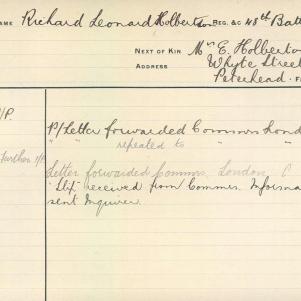 NAME Richard Leonard Holberton REG. &C 48th Batt
NEXT OF KIN Mrs E. Holberto
ADDRESS Whyte Street
Peterhead
/P. P/Letter forwarded Commrs Lond
" " repeated to " "
Further
Letter forwarded Commrs. London
received from Commrs. Informa
sent Inquirer.